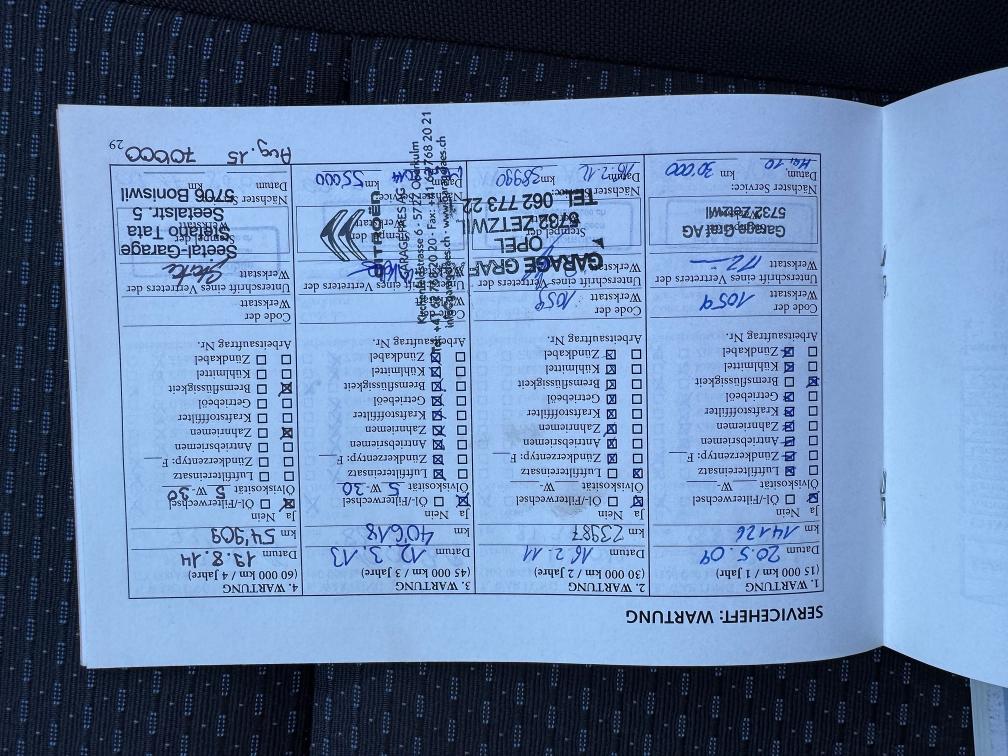 SERVICEHEFT: WARTUNG
1. WARTUNG
(15 000 km / 1 Jahr)
Datum 20.5.09
km 14126
Ja Nein
Öl-/Filterwechsel
Ölviskosität ___W-___
Luftfiltereinsatz
Zündkerzentyp: F___
Antriebsriemen
Zahnriemen
Kraftstofffilter
Getriebeöl
Bremsflüssigkeit
Kühlmittel
Zündkabel
Arbeitsauftrag Nr.
Code der Werkstatt 1059
Unterschrift eines Vertreters der
Werkstatt
Garage Graf AG
5732 Zetzwil
Nächster Service:
Datum Mai 10 km 30.000
2. WARTUNG
(30 000 km / 2 Jahre)
Datum 16.2.11
km 23987
Ja Nein
Öl-/Filterwechsel
Ölviskosität ___W-___
Luftfiltereinsatz
Zündkerzentyp: F___
Antriebsriemen
Zahnriemen
Kraftstofffilter
Getriebeöl
Bremsflüssigkeit
Kühlmittel
Zündkabel
Arbeitsauftrag Nr.
Code der Werkstatt 1059
Unterschrift eines Vertreters der
Werkstatt
GARAGE GRAF
OPEL
5732 ZETZWIL
TEL 062 773 22
Stempel der
Nächster
Datum 16.2.12 km 38990
3. WARTUNG
(45 000 km / 3 Jahre)
Datum 12.3.13
km 40'618
Ja Nein
Öl-/Filterwechsel
Ölviskosität 5 W-30
Luftfiltereinsatz
Zündkerzentyp: F___
Antriebsriemen
Zahnriemen
Kraftstofffilter
Getriebeöl
Bremsflüssigkeit
Kühlmittel
Zündkabel
Arbeitsauftrag Nr.
Code der
Unterschrift eines Vertreters der
Werkstatt
CITROËN
GARAGE FAES AG
5727 Oberkulm
Nächster Service
Datum km 55000
4. WARTUNG
(60 000 km / 4 Jahre)
Datum 19.8.14
km 54'909
Ja Nein
Öl-/Filterwechsel
Ölviskosität 5 W-30
Luftfiltereinsatz
Zündkerzentyp: F___
Antriebsriemen
Zahnriemen
Kraftstofffilter
Getriebeöl
Bremsflüssigkeit
Kühlmittel
Zündkabel
Arbeitsauftrag Nr.
Code der
Werkstatt
Unterschrift eines Vertreters der
Werkstatt
Seetal-Garage
Stefano Tata
Seetalstr. 5
5706 Boniswil
Nächster Service
Datum km
Aug. 15 70'000
29